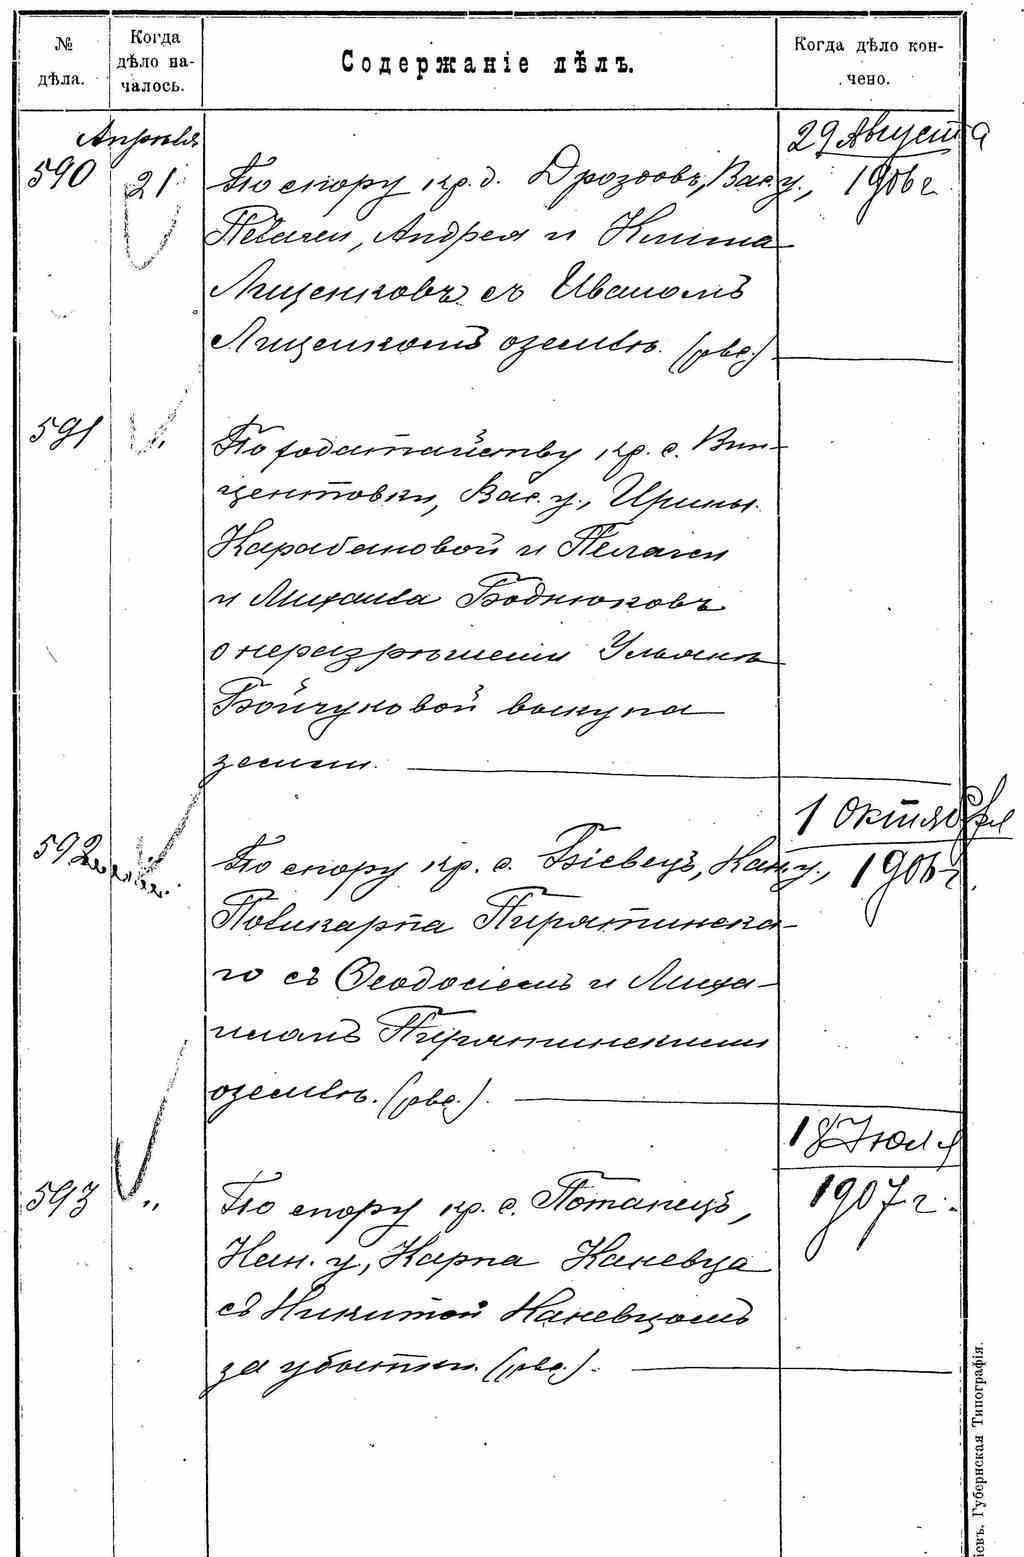 № дѣла.
Когда дѣло на-
чалось.
Содержаніе дѣлъ.
Когда дѣло кон-
чено.
Апрѣля
590
21
По спору кр. д. Дроздовъ, Вас. у.,
29 Августа
1906 г.
Пелагеи, Андрея и Клима
Лищенковъ съ Иваномъ
Лищенкомъ о землѣ. (рвс.)
591
"
По ходатайству кр. с. Вин-
центовки, Вас. у., Ирины
Карабановой и Пелагеи
и Михаила Боднюковъ
о неразрѣшеніи Ульянѣ
Бойчуковой выкупа
земли.
592
По спору кр. с. Бѣевецъ, Кан. у.,
1 Октября
1906 г.
Поликарпа Пирятинска-
го съ Ѳеодосіемъ и Миха-
иломъ Пирятинскими
о землѣ. (рвс.).
593
"
По спору кр. с. Потапецъ,
18 Іюля
1907 г.
Кан. у, Карпа Каневца
съ Никитой Каневцомъ
за убытки. (рвс.).
іевъ. Губернская Типографія.